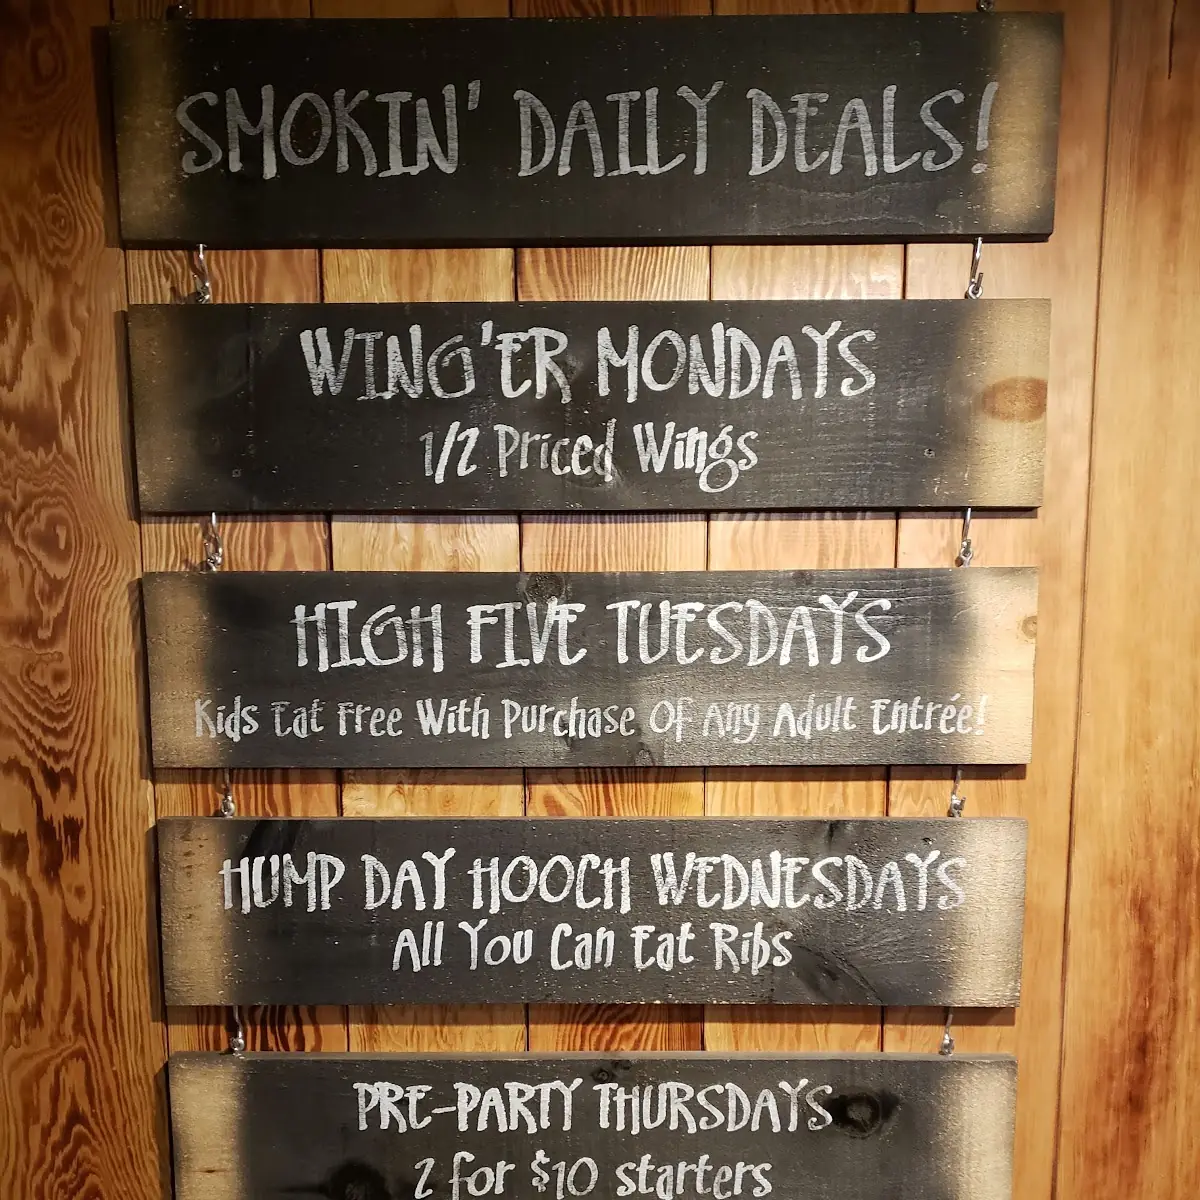 SMOKIN' DAILY DEALS!
WING'ER MONDAYS
1/2 Priced Wings
HIGH FIVE TUESDAYS
Kids Eat Free With Purchase Of Any Adult Entrée!
HUMP DAY HOOCH WEDNESDAYS
All You Can Eat Ribs
PRE-PARTY THURSDAYS
2 for $10 starters